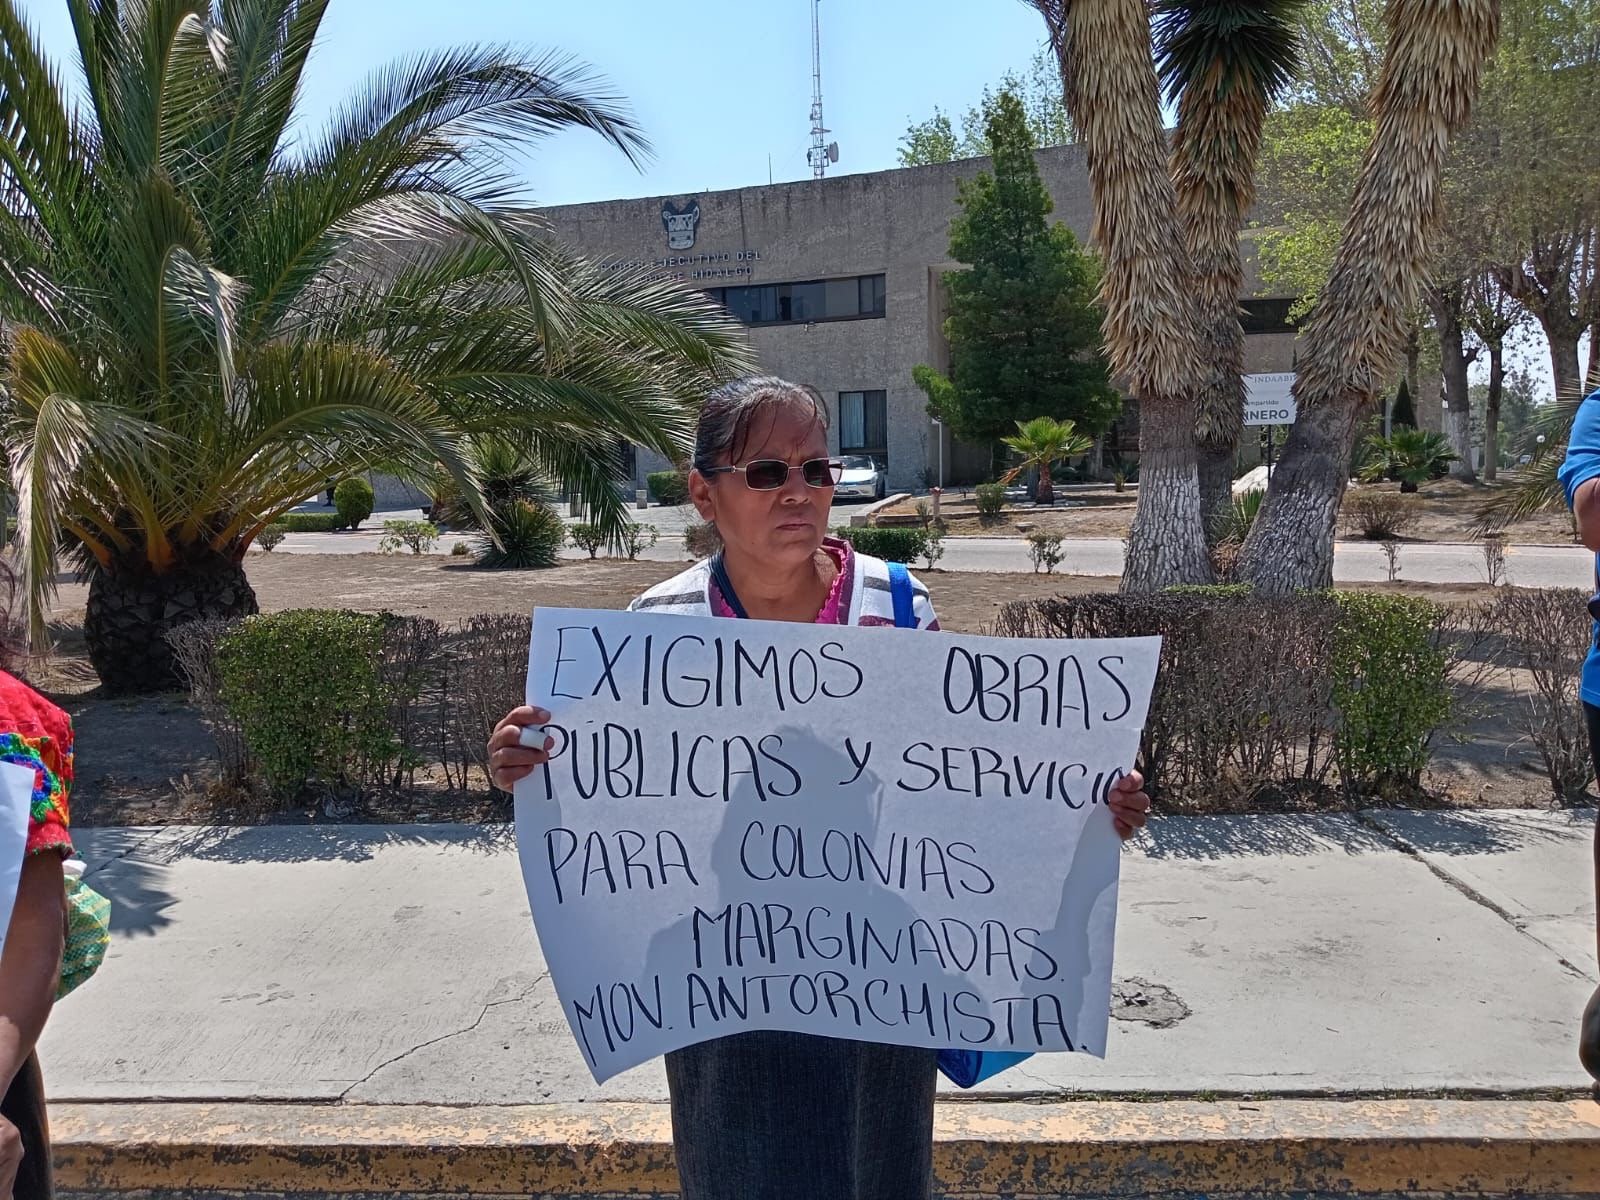 PODER EJECUTIVO DEL
HIDALGO
INDAABI
mpartido
INERO
EXIGIMOS OBRAS
PÚBLICAS Y SERVICIO
PARA COLONIAS
MARGINADAS.
MOV. ANTORCHISTA.